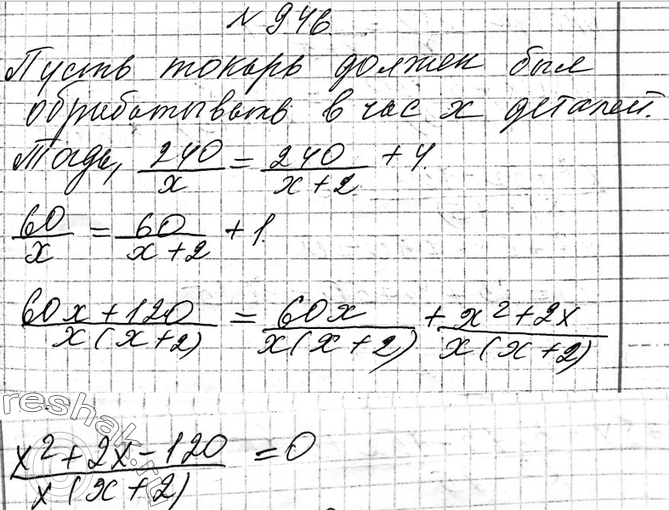 № 946
Пусть токарь должен был
обрабатывать в час x деталей.
Тогда, 240/x = 240/(x+2) + 4.
60/x = 60/(x+2) + 1.
(60x+120)/(x(x+2)) = 60x/(x(x+2)) + (x²+2x)/(x(x+2))
reshak.ru
(x²+2x-120)/(x(x+2)) = 0